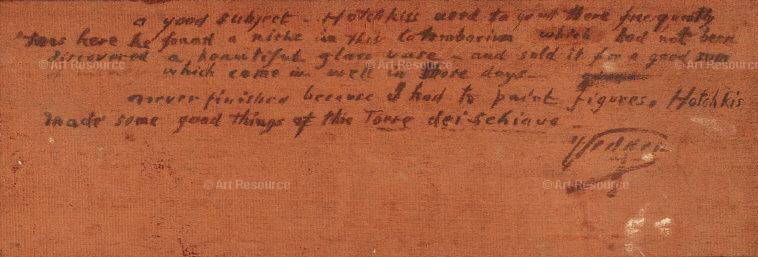 a good subject - Hotchkiss used to go out there frequently
twas here he found a niche in this Columbarium which had not been
discovered a beautiful glass vase - and sold it for a good sum
which came in well in those days -
never finished because I had to paint figures. Hotchkis
made some good things of this Torre dei Schiavi -
Vedder
© Art Resource © Art Resource © Art Resource
© Art Resource © Art Resource